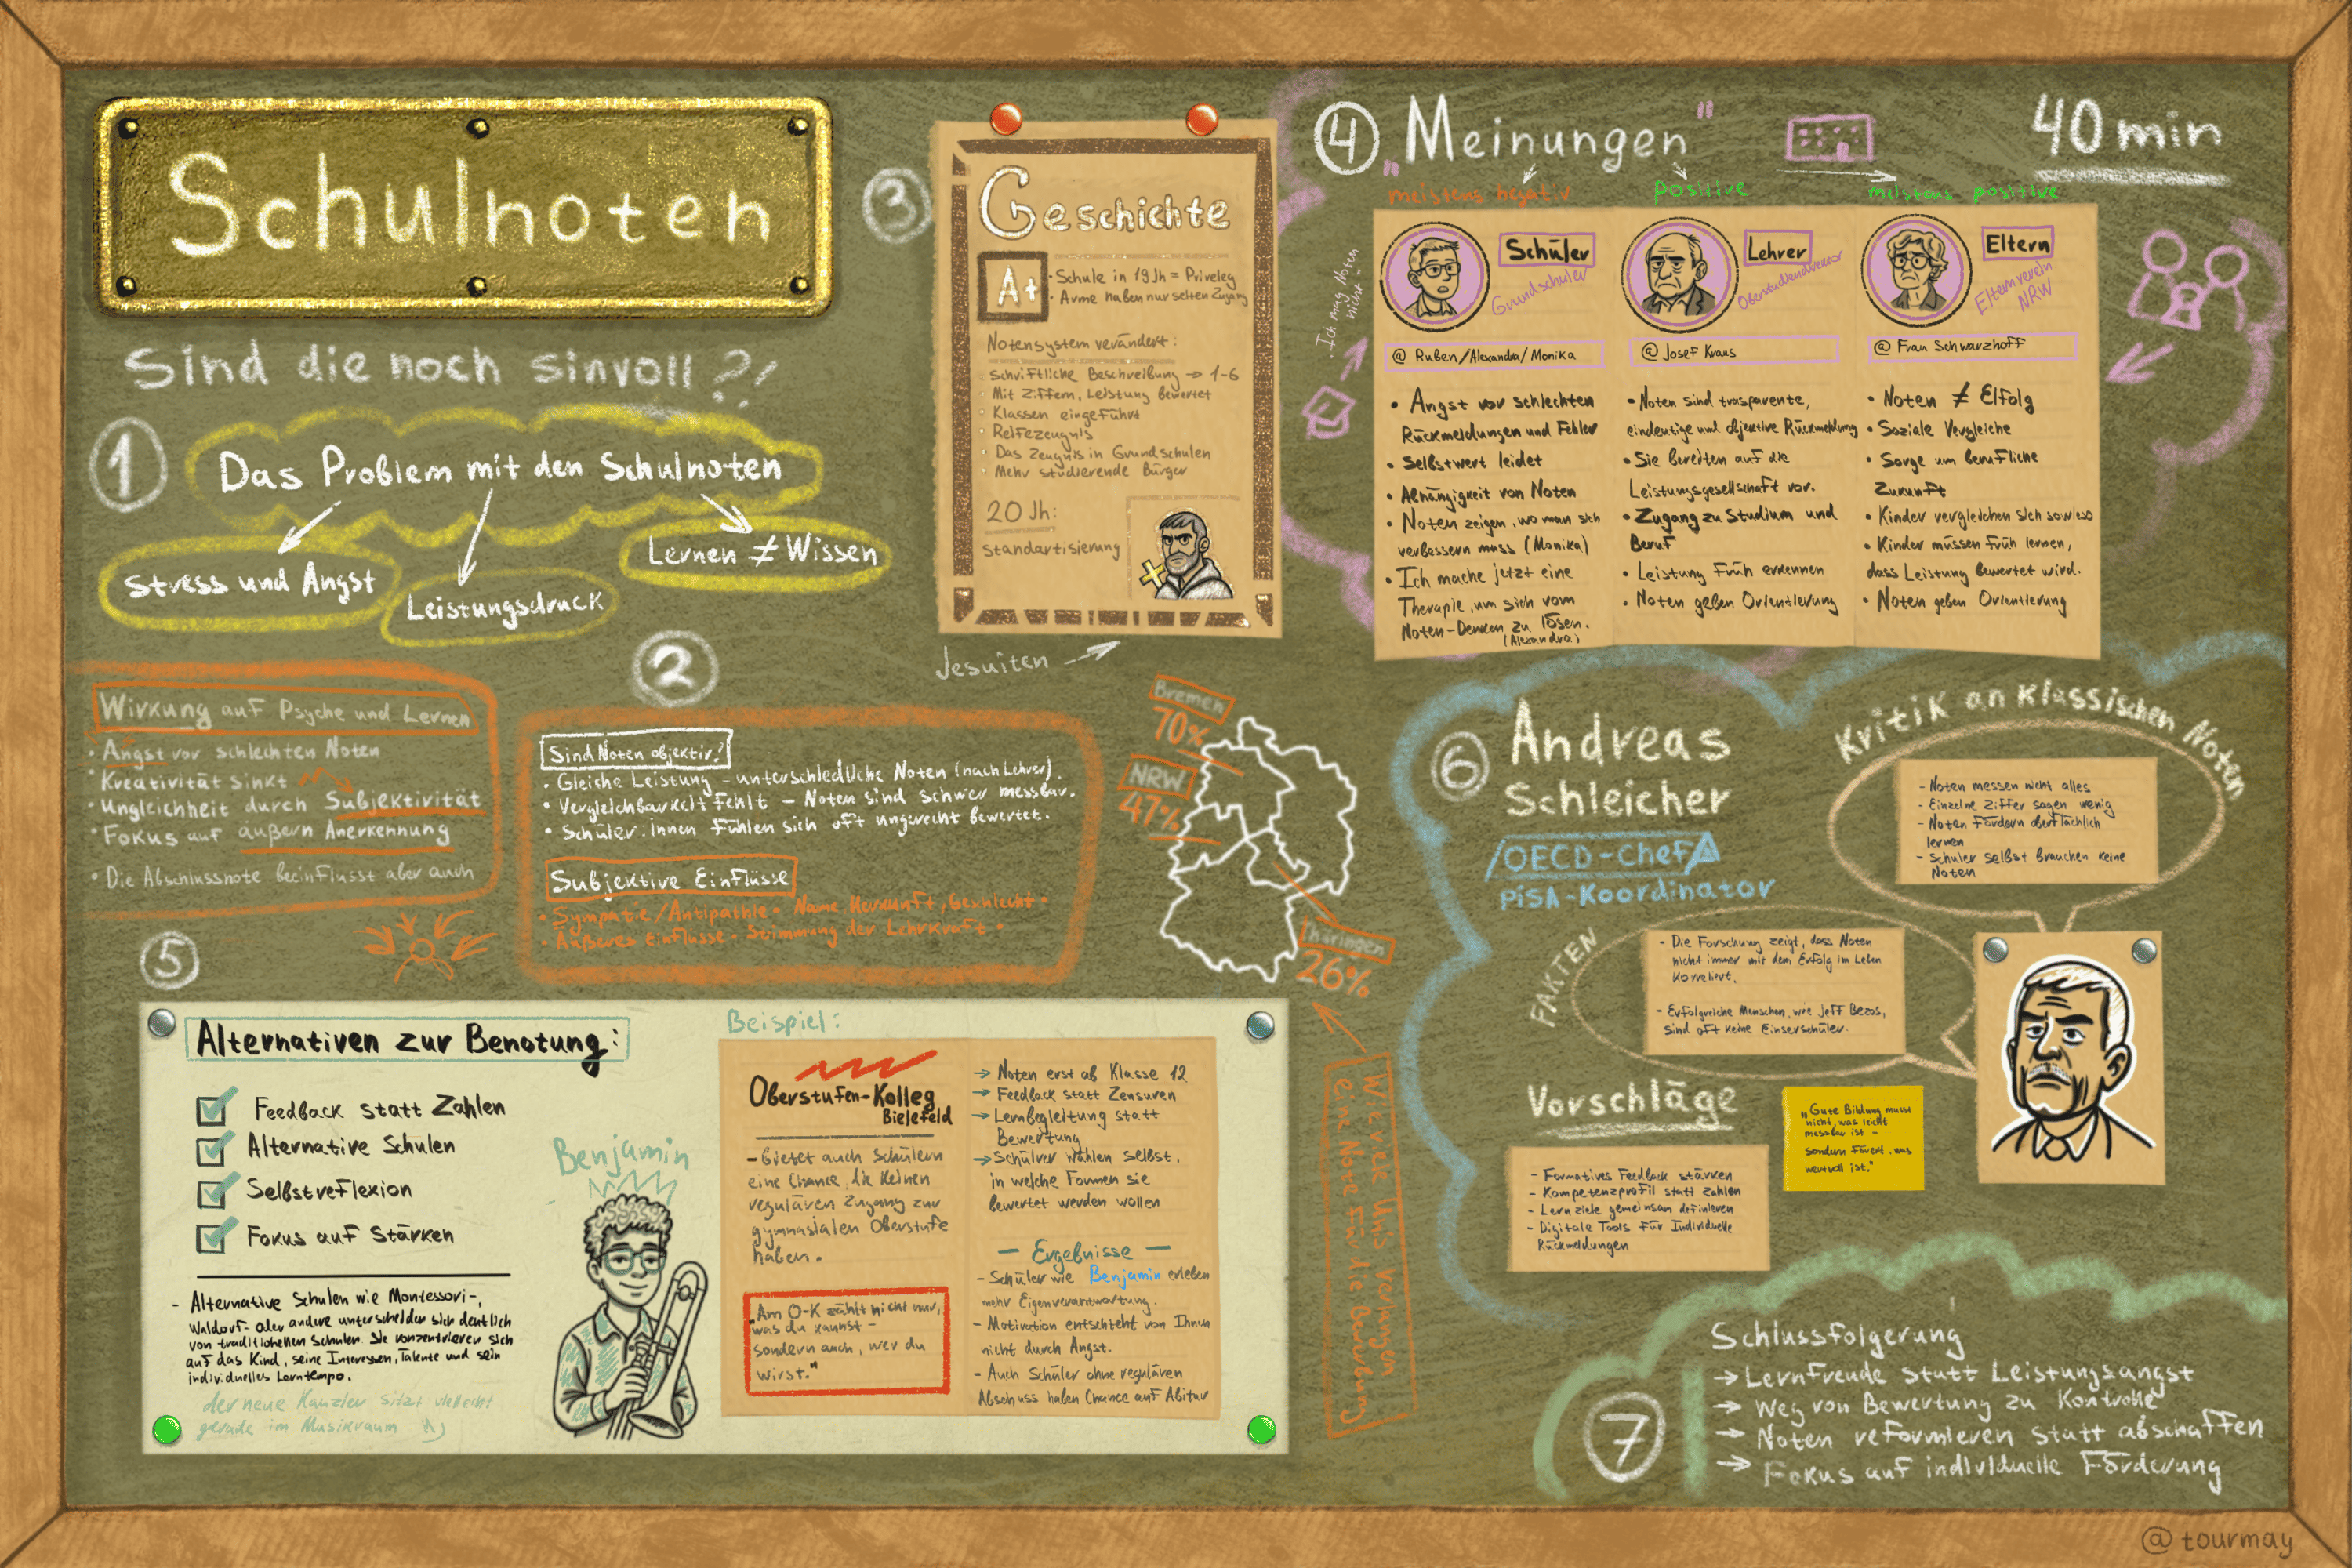 Schulnoten
Sind die noch sinvoll?!
1
Das Problem mit den Schulnoten
Stress und Angst
Leistungsdruck
Lernen ≠ Wissen
Wirkung auf Psyche und Lernen
• Angst vor schlechten Noten
• Kreativität sinkt
• Ungleichheit durch Subjektivität
• Fokus auf äußern Anerkennung
• Die Abschlussnote beeinflusst aber auch
2
Sind Noten objektiv?
• Gleiche Leistung – unterschiedliche Noten (nach Lehrer).
• Vergleichbarkeit fehlt – Noten sind schwer messbar.
• Schüler.innen fühlen sich oft ungerecht bewertet.
Subjektive Einflüsse
• Sympatie/Antipathie • Name Herkunft, Geschlecht •
• Äußeres Einflüsse • Stimmung der Lehrkraft •
3
Geschichte
A+
• Schule in 19 Jh = Priveleg
• Arme haben nur selten Zugang
Notensystem verändert:
Schriftliche Beschreibung → 1-6
Mit Ziffern, Leistung bewertet
Klassen eingeführt
Reifezeugnis
Das Zeugnis in Grundschulen
Mehr studierende Bürger
20 Jh:
standartisierung
Jesuiten
Bremen
70%
NRW
47%
Thüringen
26%
Wie viele Unis verlangen
eine Note für die Bewerbung
4
„Meinungen"
40 min
meistens negativ
positive
meistens positive
Ich mag Noten
nicht
Schüler
Grundschüler
@ Ruben/Alexandra/Monika
• Angst vor schlechten
Rückmeldungen und Fehler
• Selbstwert leidet
• Abhängigkeit von Noten
• Noten zeigen, wo man sich
verbessern muss (Monika)
• Ich mache jetzt eine
Therapie, um sich vom
Noten-Denken zu lösen.
(Alexandra)
Lehrer
@ Josef Kraus
• Noten sind trasparente,
eindeutige und objektive Rückmeldung
• Sie bereiten auf die
Leistungsgesellschaft vor.
• Zugang zu Studium und
Beruf
• Leistung früh erkennen
• Noten geben Orientierung
Eltern
Elternverein
NRW
@ Frau Schwarzhoff
• Noten ≠ Elfolg
• Soziale Vergleiche
• Sorge um berufliche
Zukunft
• Kinder vergleichen sich sowieso
• Kinder müssen früh lernen,
dass Leistung bewertet wird.
• Noten geben Orientierung
5
Alternativen zur Benotung:
Feedback statt Zahlen
Alternative Schulen
Selbstreflexion
Fokus auf Stärken
- Alternative Schulen wie Montessori-,
Waldorf- oder andere unterscheiden sich deutlich
von traditionellen Schulen. Sie konzentrieren sich
auf das Kind, seine Interessen, Talente und sein
individuelles Lerntempo.
der neue Kanzler sitzt vielleicht
gerade im Musikraum
Benjamin
Beispiel:
Oberstufen-Kolleg
Bielefeld
- Bietet auch Schülern
eine Chance, die keinen
regulären Zugang zur
gymnasialen Oberstufe
haben.
„Am O-K zählt nicht nur,
was du kannst –
sondern auch, wer du
wirst."
→ Noten erst ab Klasse 12
→ Feedback statt Zensuren
→ Lernbegleitung statt
Bewertung
→ Schülrer wählen selbst,
in welche Formen sie
bewertet werden wollen
– Ergebnisse –
- Schüler wie Benjamin erleben
mehr Eigenverantwortung.
- Motivation entschteht von Ihnen
nicht durch Angst.
- Auch Schüler ohne regulären
Abschuss haben Chance auf Abitur
6
Andreas
Schleicher
OECD-Chef
PISA-Koordinator
Kritik an klassischen Noten
- Noten messen nicht alles
- Einzelne Ziffer sagen wenig
- Noten fördern oberflächlich
lernen
- Schüler selbst brauchen keine
Noten
FAKTEN
- Die Forschung zeigt, dass Noten
nicht immer mit dem Erfolg im Leben
korreliert.
- Erfolgreiche Menschen, wie Jeff Bezos,
sind oft keine Einserschüler.
Vorschläge
- Formatives Feedback stärken
- Kompetenzprofil statt Zahlen
- Lernziele gemeinsam definieren
- Digitale Tools für Individuelle
Rückmeldungen
„Gute Bildung musst
nicht, was leicht
messbar ist –
sondern fövert, was
wertvoll ist."
7
Schlussfolgerung
→ Lernfreude statt Leistungsangst
→ Weg von Bewertung zu Kontrolle
→ Noten reformieren statt abschaffen
→ Fokus auf individuelle Förderung
@tourmay